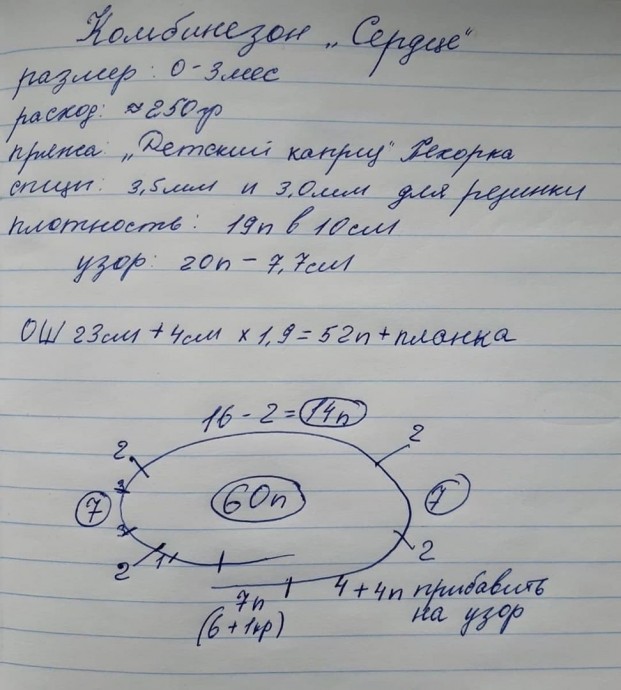 Комбинезон „Сердце"
размер: 0-3мес
расход: ≈250гр
пряжа: „Детский каприз" Пехорка
спицы: 3,5мм и 3,0мм для резинки
плотность: 19п в 10см
узор: 20п - 7,7см
ОШ 23см + 4см х 1,9 = 52п + планка
16 - 2 = 14п
2 2
3
7 60п 7
3
2 1 2
7п 4 + 4п прибавить
(6 + 1кр) на узор